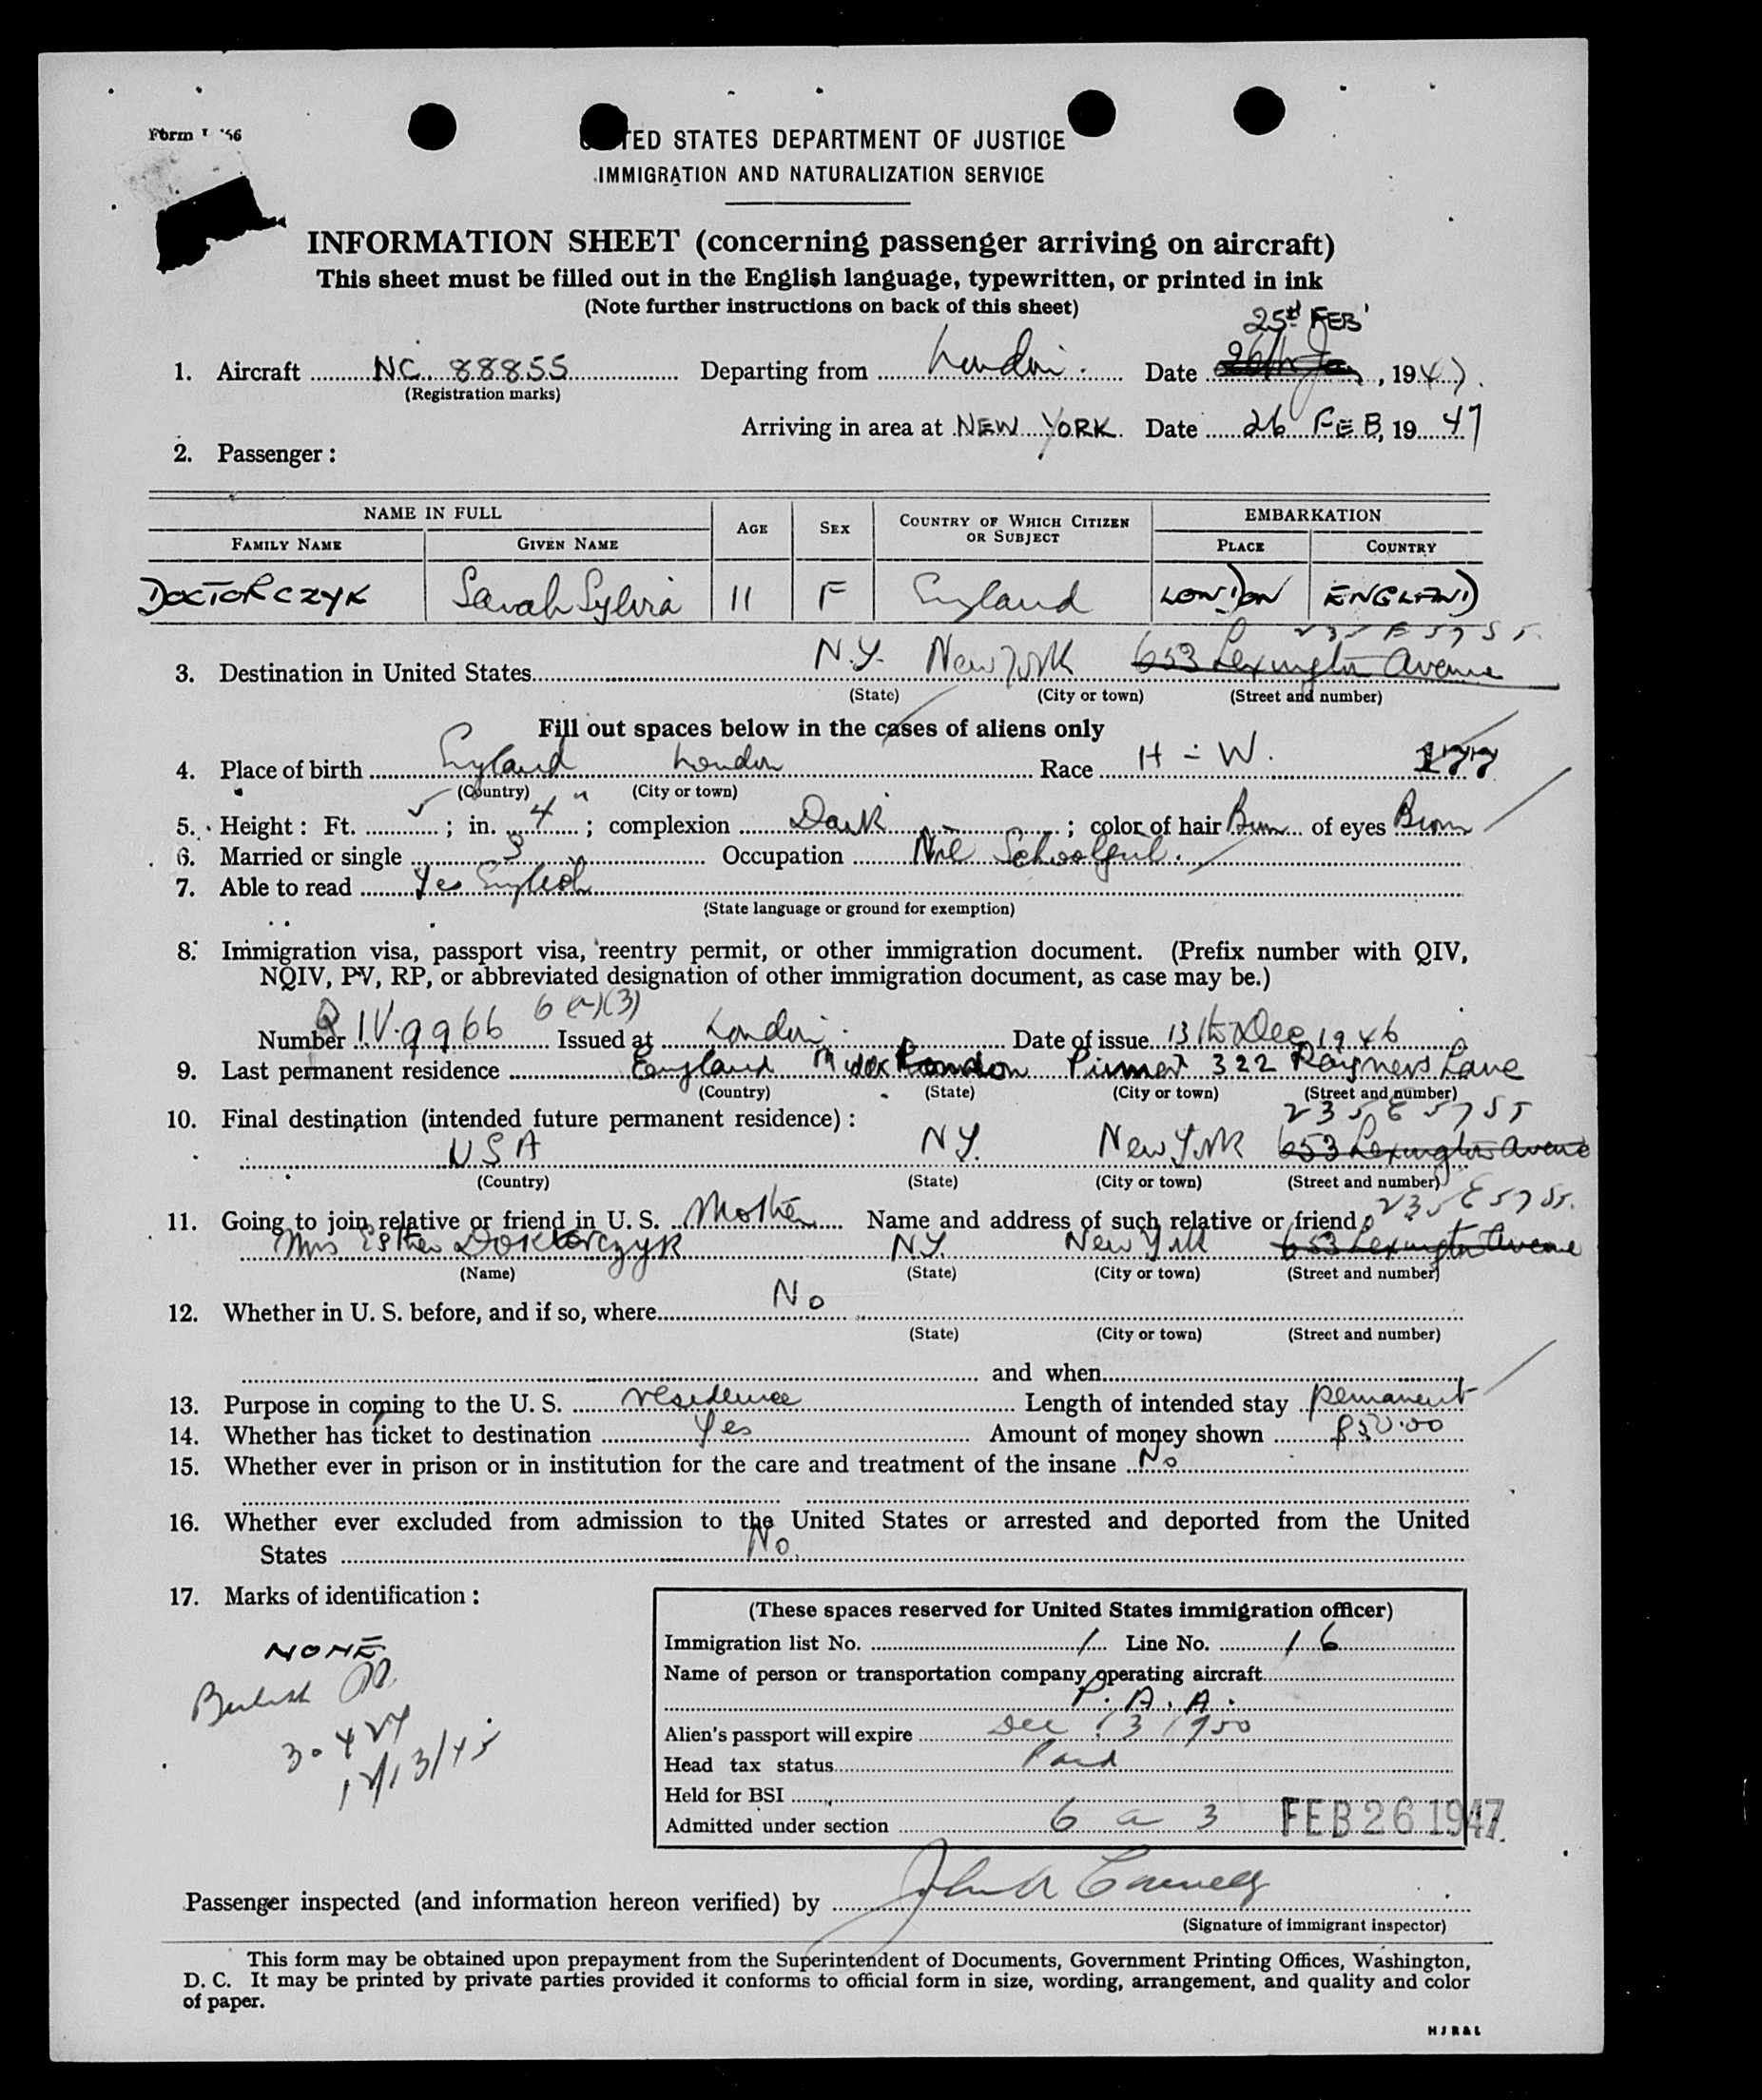 Form I 466
UNITED STATES DEPARTMENT OF JUSTICE
IMMIGRATION AND NATURALIZATION SERVICE
INFORMATION SHEET (concerning passenger arriving on aircraft)
This sheet must be filled out in the English language, typewritten, or printed in ink
(Note further instructions on back of this sheet)
25th FEB
1. Aircraft NC 88855 Departing from London. Date 26th Jan, 1947.
(Registration marks)
Arriving in area at NEW YORK Date 26 FEB, 1947
2. Passenger:
NAME IN FULL AGE SEX COUNTRY OF WHICH CITIZEN OR SUBJECT EMBARKATION
FAMILY NAME GIVEN NAME PLACE COUNTRY
DOCTORCZYK Sarah Sylvia 11 F England LONDON ENGLAND
235 E 57 ST.
3. Destination in United States N.Y. New York 653 Lexington Avenue
(State) (City or town) (Street and number)
Fill out spaces below in the cases of aliens only
4. Place of birth England London Race H - W. 177
(Country) (City or town)
5. Height: Ft. 5; in. 4"; complexion Dark; color of hair Brn of eyes Brown
6. Married or single S Occupation Nil Schoolgirl.
7. Able to read Yes English
(State language or ground for exemption)
8. Immigration visa, passport visa, reentry permit, or other immigration document. (Prefix number with QIV,
NQIV, PV, RP, or abbreviated designation of other immigration document, as case may be.)
6(a)(3)
Number QIV.9966 Issued at London. Date of issue 13th Dec 1946
9. Last permanent residence England Middx London Pinner 322 Rayners Lane
(Country) (State) (City or town) (Street and number)
10. Final destination (intended future permanent residence): 235 E 57 ST
USA N.Y. New York 653 Lexington Avenue
(Country) (State) (City or town) (Street and number)
11. Going to join relative or friend in U. S. Mother Name and address of such relative or friend 235 E 57 St.
Mrs Esther Doktorczyk N.Y. New York 653 Lexington Avenue
(Name) (State) (City or town) (Street and number)
12. Whether in U. S. before, and if so, where No
(State) (City or town) (Street and number)
and when
13. Purpose in coming to the U. S. residence Length of intended stay permanent
14. Whether has ticket to destination Yes Amount of money shown $50.00
15. Whether ever in prison or in institution for the care and treatment of the insane No
16. Whether ever excluded from admission to the United States or arrested and deported from the United
States No.
17. Marks of identification:
NONE
British
30424
12/13/45
(These spaces reserved for United States immigration officer)
Immigration list No. 1 Line No. 16
Name of person or transportation company operating aircraft
P. A. A.
Alien's passport will expire Dec 13 1950
Head tax status Paid
Held for BSI
Admitted under section 6 a 3 FEB 26 1947
Passenger inspected (and information hereon verified) by John
(Signature of immigrant inspector)
This form may be obtained upon prepayment from the Superintendent of Documents, Government Printing Offices, Washington,
D. C. It may be printed by private parties provided it conforms to official form in size, wording, arrangement, and quality and color
of paper.